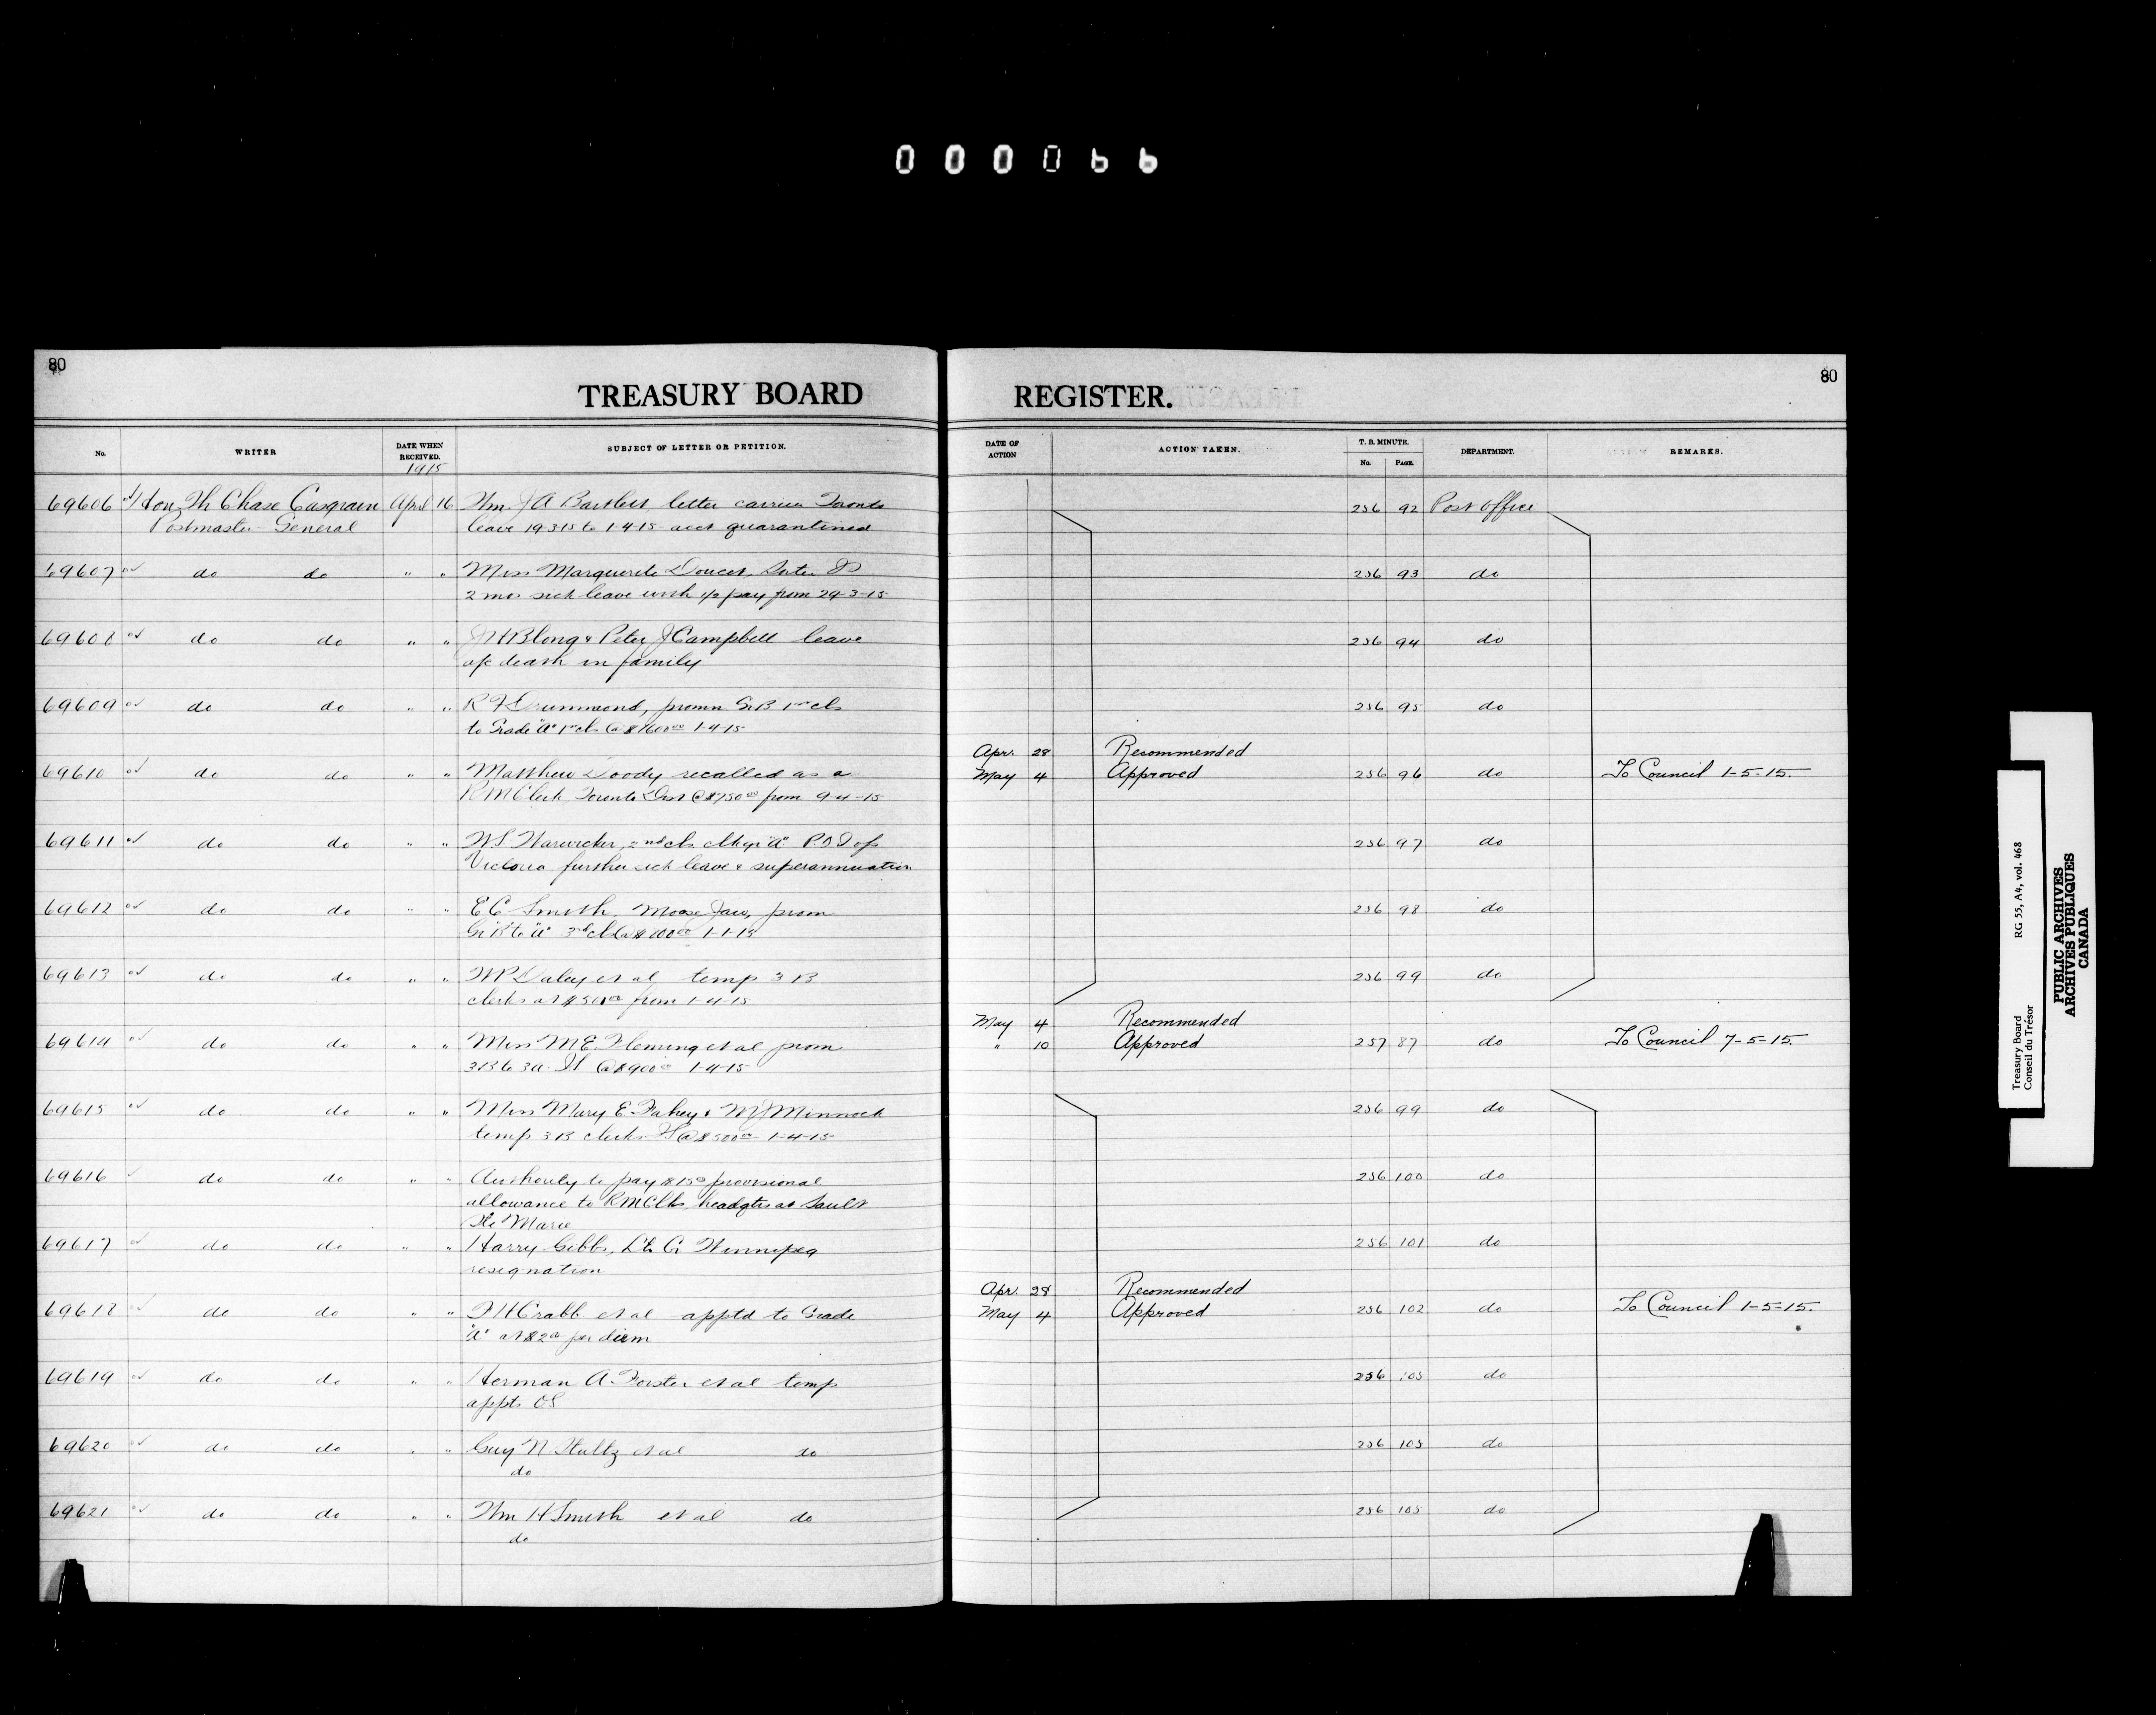 000066
80
80
TREASURY BOARD REGISTER.
No. WRITER DATE WHEN RECEIVED. SUBJECT OF LETTER OR PETITION. DATE OF ACTION ACTION TAKEN. T. B. MINUTE. No. PAGE. DEPARTMENT. REMARKS.
1915
69606 Hon Th Chase Casgrain April 16 Wm J A Bartlett letter carrier Toronto 256 92 Post Office
Postmaster General leave 19-3-15 to 1-4-15 acct quarantined
69607 do do " " Miss Marguerite Doucet, 256 93 do
2 mos sick leave with 1/2 pay from 29-3-15
69608 do do " " Blong & Peter J Campbell leave 256 94 do
a/c death in family
69609 do do " " R F Drummond, promn Gr B 1st cls 256 95 do
to Grade "A" 1st cls @ $1600 00 1-4-15
Apr. 28 Recommended
69610 do do " " Matthew Doody recalled as a May 4 Approved 256 96 do To Council 1-5-15.
R M Clerk Toronto Dist @ $750 00 from 9-4-15
69611 do do " " W.S. Warwicker, 2nd cls "A" P.O. 256 97 do
Victoria further sick leave & superannuation
69612 do do " " E C Smith, Moose Jaw, prom 256 98 do
Gr "B" to "A" 3rd cls 1-1-15
69613 do do " " W P Daley et al temp 3 B 256 99 do
clerks at $500 00 from 1-4-15
May 4 Recommended
69614 do do " " Miss M E. Fleming et al prom " 10 Approved 257 87 do To Council 7-5-15.
3B to 3A @ $900 00 1-4-15
69615 do do " " Miss Mary E Fahey & M J Minnock 256 99 do
temp 3 B clerks @ $500 00 1-4-15
69616 do do " " Authority to pay $15 00 provisional 256 100 do
allowance to R M Clks, headqtrs at Sault
Ste Marie
69617 do do " " Harry Gibbs, Lr Cr Winnipeg 256 101 do
resignation
Apr. 28 Recommended
69618 do do " " F H Crabb et al apptd to Grade May 4 Approved 256 102 do To Council 1-5-15.
"A" at $2 00 per diem
69619 do do " " Herman A. Forster et al temp 256 105 do
appts OS
69620 do do " " Guy N Stultz et al do 256 105 do
do
69621 do do " " Wm H Smith et al do 256 105 do
do
Treasury Board RG 55, A4, vol. 468
Conseil du Trésor
PUBLIC ARCHIVES
ARCHIVES PUBLIQUES
CANADA